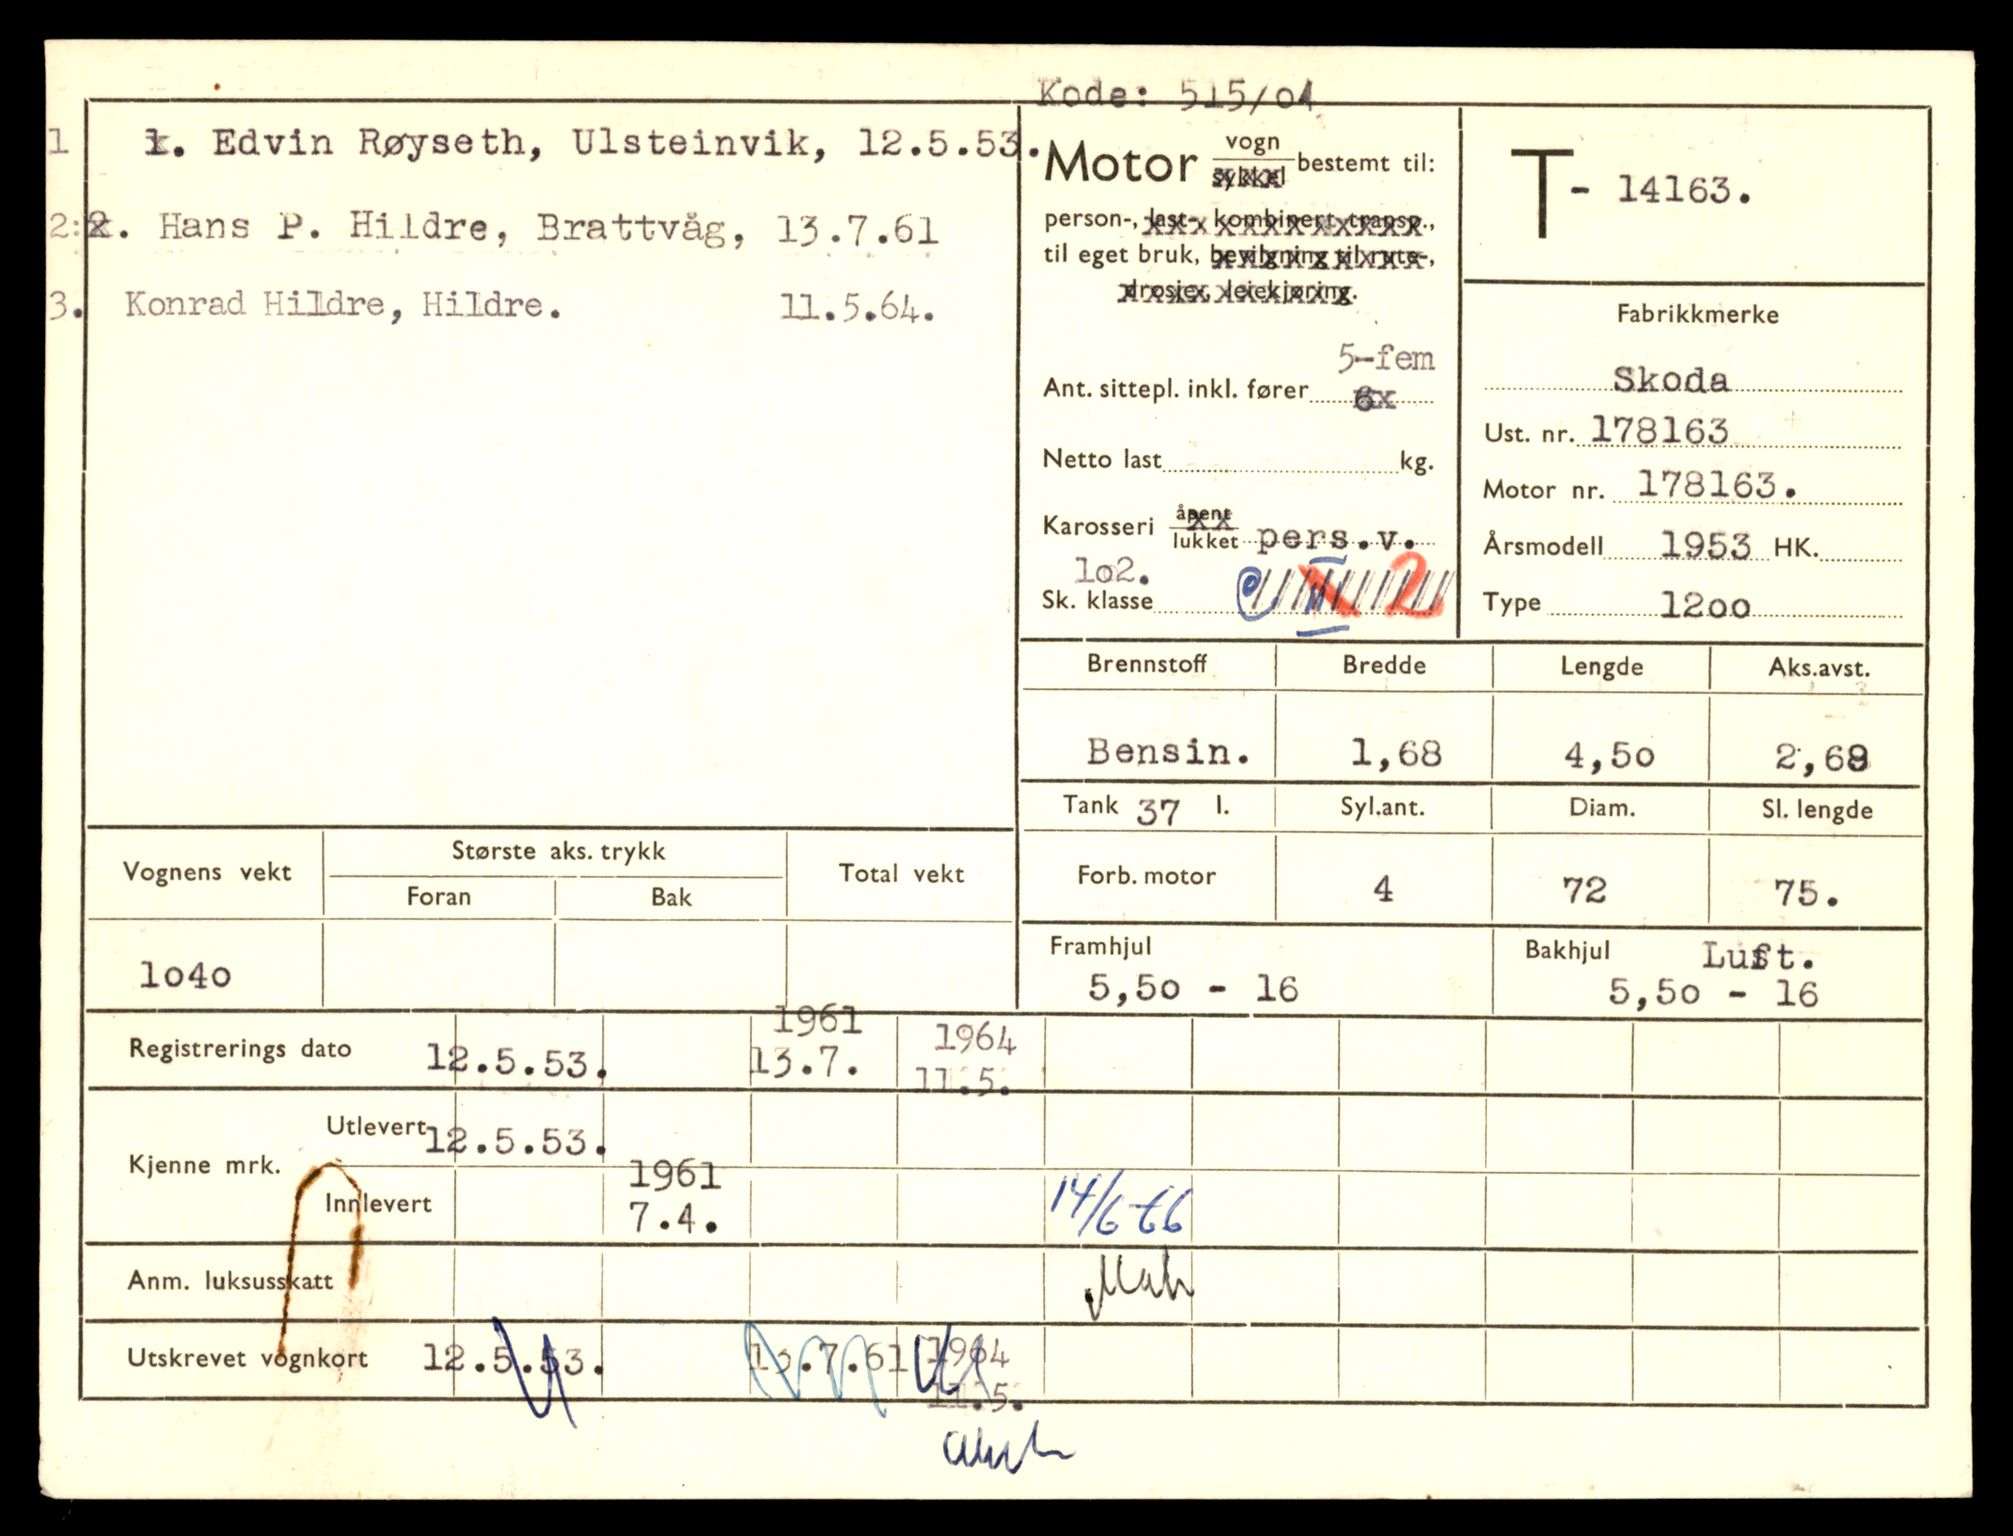 Kode: 515/01
1 1. Edvin Røyseth, Ulsteinvik, 12.5.53.
2: 2. Hans P. Hildre, Brattvåg, 13.7.61
3. Konrad Hildre, Hildre. 11.5.64.
Motor vogn sykkel bestemt til:
person-, last-, kombinert transp.,
til eget bruk, bevilgning til rute-,
drosje, leiekjøring.
5-fem
Ant. sittepl. inkl. fører 6
Netto last kg.
Karosseri åpent lukket pers.v.
102.
Sk. klasse 2
T- 14163.
Fabrikkmerke
Skoda
Ust. nr. 178163
Motor nr. 178163.
Årsmodell 1953 HK.
Type 12oo
Brennstoff Bredde Lengde Aks.avst.
Bensin. 1,68 4,5o 2,68
Tank 37 l. Syl.ant. Diam. Sl. lengde
Forb. motor 4 72 75.
Framhjul Bakhjul Luft.
5,5o - 16 5,5o - 16
Vognens vekt Største aks. trykk Total vekt
Foran Bak
lo4o
1961 1964
Registrerings dato 12.5.53. 13.7. 11.5.
Kjenne mrk. Utlevert 12.5.53.
Innlevert 1961 7.4. 14/6-66
Anm. luksusskatt
Utskrevet vognkort 12.5.53. 13.7.61 1964
11.5.